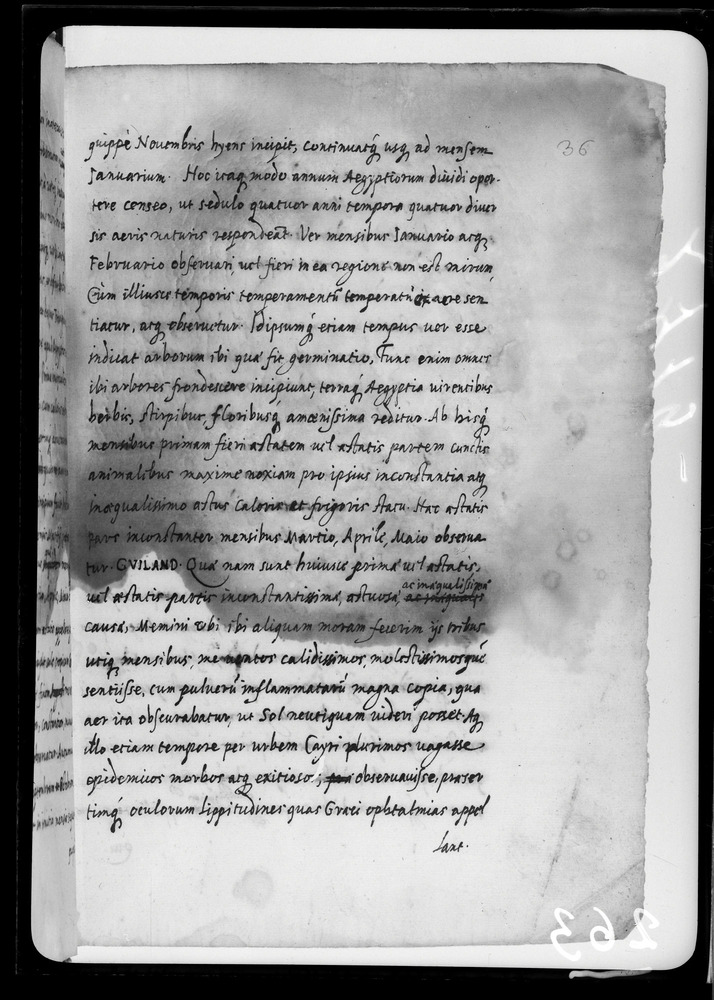 36
quippè Nouembris hyens incipit, continuatq̃ usq̃ ad mensem
Januarium. Hoc itaq̃ modo annum Aegyptiorum diuidi opor-
tere censeo, ut sedulo quatuor anni tempora quatuor diuer
sis aeris naturis respondeãt. Ver mensibus Januario atq̃
Februario obseruari, uel fieri in ea regione non est mirum,
Cùm illiusce temporis temperamentũ temperatũ ex aere sen
tiatur, atq̃ obseruetur. Idipsumq̃ etiam tempus uer esse
indicat arborum ibi quæ fit germinatio, Tunc enim omnes
ibi arbores frondescere incipiunt, terraq̃ Aegyptia uirentibus
herbis, stirpibus, floribusq̃ amœnissima reditur. Ab hisq̃
mensibus primam fieri æstatem uel æstatis partem cunctis
animalibus maxime noxiam pro ipsius inconstantia atq̃
inæqualissimo æstus caloris et frigoris statu. Hæc æstatis
pars inconstanter mensibus Martio, Aprile, Maio obserua
tur. GVILAND. Quæ nam sunt huiusce primæ uel æstatis,
uel æstatis partis inconstantissimæ, æstuosæ, ac inæqualissimæ
causæ, Memini ubi ibi aliquam moram fecerim ijs tribus
utiq̃ mensibus, me uentos calidissimos, molestissimosque
sentijsse, cum puluerũ inflammatarũ magna copia, qua
aer ita obscurabatur, ut Sol neutiquam uideri posset. Atq̃
illo etiam tempore per urbem Cayri plurimos uagasse
epidemicos morbos atq̃ exitiosos; obseruauisse, præser
timq̃ oculorum lippitudines quas Græci ophtalmias appel
lant.
263